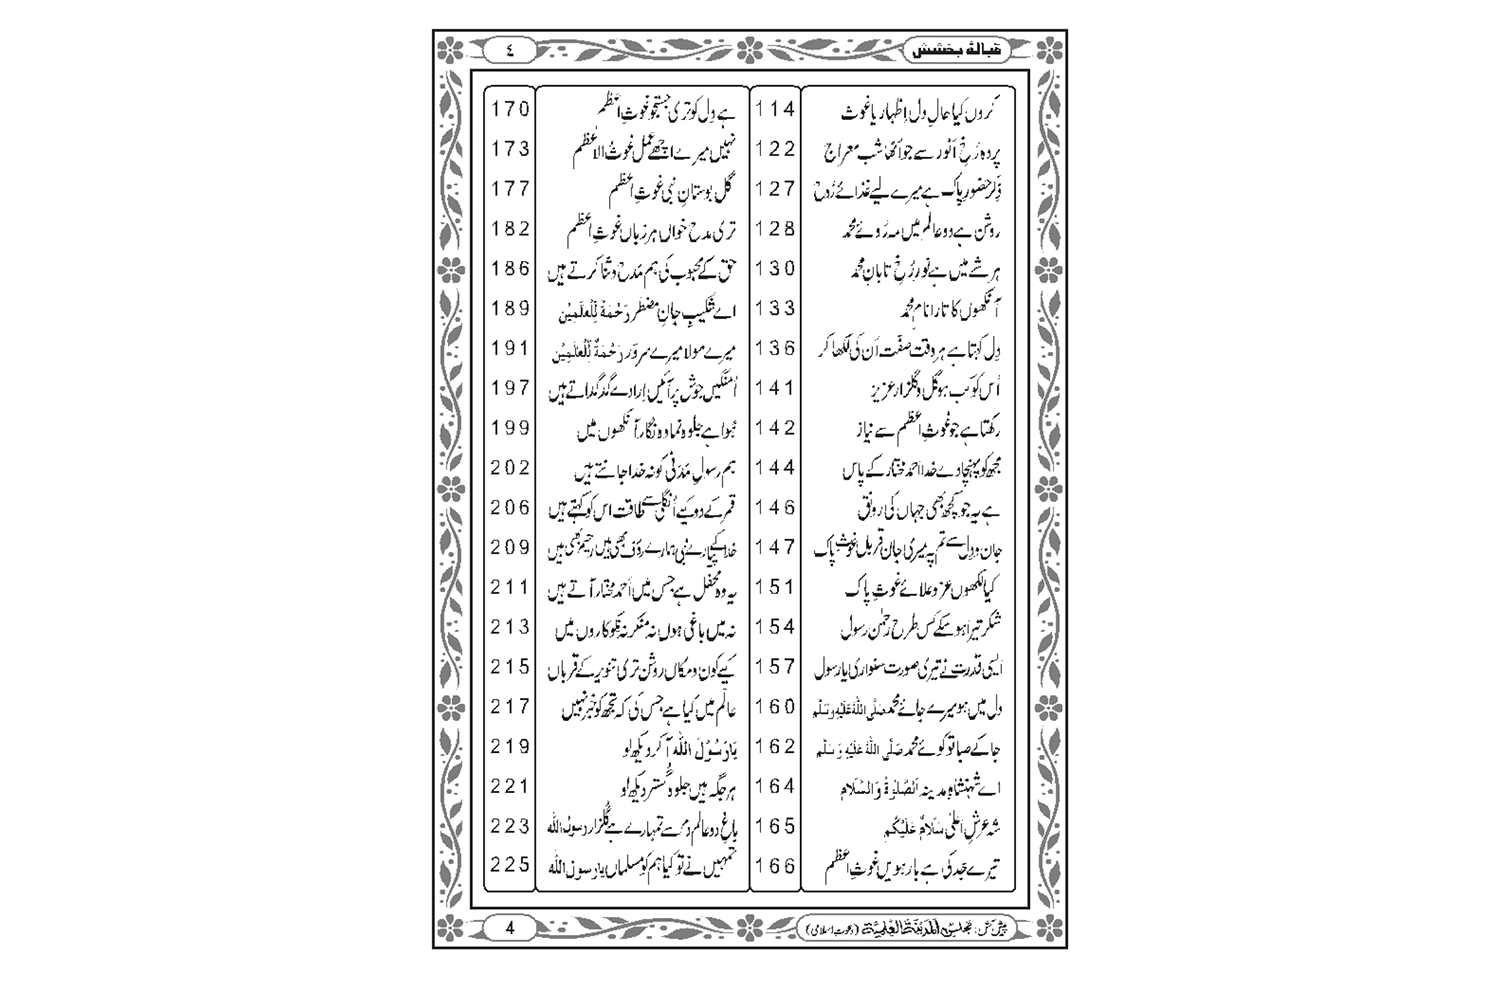 قبالۂ بخشش
٤
کروں کیا حالِ دل اِظہار یا غوث 114
پردہ رُخِ اَنور سے جو اُٹھا شبِ معراج 122
ذِکرِ حضورِ پاک ہے میرے لیے غذائے رُوح 127
روشن ہے دو عالم میں مہ رُوئے محمد 128
ہر شے میں ہے نورِ رُخِ تابانِ محمد 130
آنکھوں کا تارا نامِ محمد 133
دِل کہتا ہے ہر وقت صفت اُن کی لکھا کر 136
اُس کو کب ہو گل و گلزار عزیز 141
رکھتا ہے جو غوثِ اعظم سے نیاز 142
مجھ کو پہنچا دے خدا احمدِ مختار کے پاس 144
ہے یہ جو کچھ بھی جہاں کی رونق 146
جان و دِل سے تم پہ میری جان قرباں غوثِ پاک 147
کیا لکھوں عز و علائے غوثِ پاک 151
شکر تیرا ہو سکے کس طرح رحمٰن رسول 154
ایسی قدرت نے تیری صورت سنواری یا رسول 157
دل میں ہو میرے جائے محمد صَلَّی اللّٰہُ عَلَیْہِ وَسَلَّم 160
جا کے صبا تو کوئے محمد صَلَّی اللّٰہُ عَلَیْہِ وَسَلَّم 162
اے شہنشاہِ مدینہ اَلصَّلٰوۃُ وَالسَّلَام 164
شہ عرشِ اعلیٰ سَلَامٌ عَلَیْکُم 165
تیرے جَد کی ہے بارہویں غوثِ اعظم 166
ہے دِل کو تری جستجو غوثِ اعظم 170
نہیں میرے اچھے عمل غوثُ الاعظم 173
گلِ بوستانِ نبی غوثِ اعظم 177
تری مدح خواں ہر زباں غوثِ اعظم 182
حق کے محبوب کی ہم مَدح و ثنا کرتے ہیں 186
اے شکیبِ جانِ مضطر رَحْمَۃٌ لِّلْعٰلَمِیْن 189
میرے مولا میرے سرور رَحْمَۃٌ لِّلْعٰلَمِیْن 191
اُمنگیں جوش پر آئیں اِرادے گدگداتے ہیں 197
ہُوا ہے جلوہ نما وہ نگار آنکھوں میں 199
ہم رسولِ مَدَنی کو نہ خدا جانتے ہیں 202
قمر کے دو کیے اُنگلی سے طاقت اس کو کہتے ہیں 206
خدا کے پیارے نبی ہمارے رؤف بھی ہیں رحیم بھی ہیں 209
یہ وہ محفل ہے جس میں اَحمدِ مختار آتے ہیں 211
نہ میں باغی ہوں نہ منکر نہ نِکوکاروں میں 213
کیے کون و مکاں روشن تری تنویر کے قرباں 215
عالَم میں کیا ہے جس کی کہ تجھ کو خبر نہیں 217
یَارَسُوْلَ اللّٰہ آ کر دیکھ لو 219
ہر جگہ ہیں جلوہ گُستر دیکھ لو 221
باغِ دو عالم دَم سے تمہارے ہے گلزار رسولُ اللّٰہ 223
تمہیں نے تو کیا ہم کو مسلماں یارسولَ اللّٰہ 225
پیش کش: مجلس اَلْمَدِیْنَۃُ الْعِلْمِیَّۃ (دعوتِ اسلامی)
4